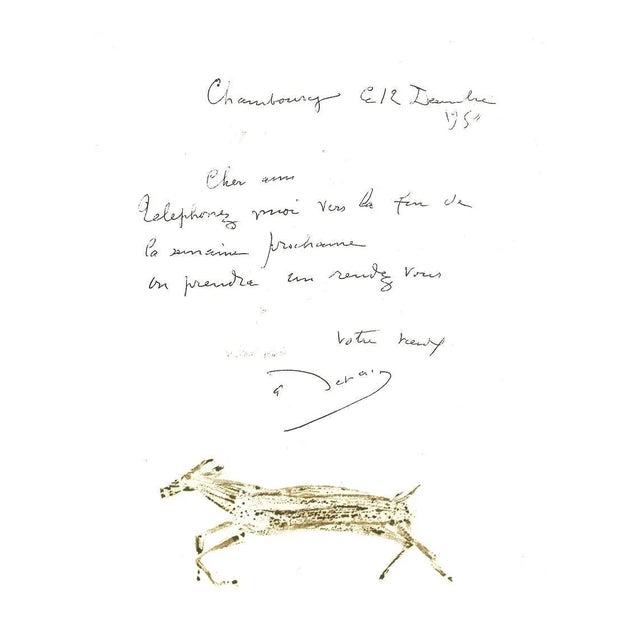 Chambourcy le 12 Decembre
195
Cher ami
telephonez moi vers la fin de
la semaine prochaine
on prendra un rendez vous
Votre vieux
a Derain